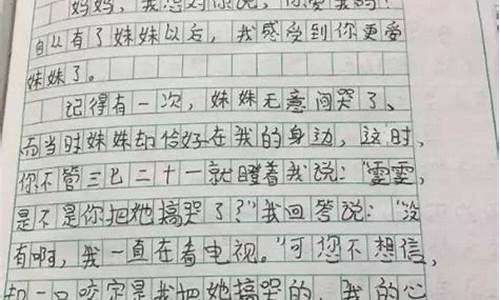 妈妈，我想对你说，你爱我吗？
自从有了妹妹以后，我感受到你更爱
妹妹了。
记得有一次，妹妹无意间哭了、
而当时妹妹却恰好在我的身边，这时，
你不管三七二十一就瞪着我说：“雯雯，
是不是你把她搞哭了？”我回答说：“没
有啊，我一直在看电视。”可您不想信，
却一口咬定是我把她搞哭的，我的心